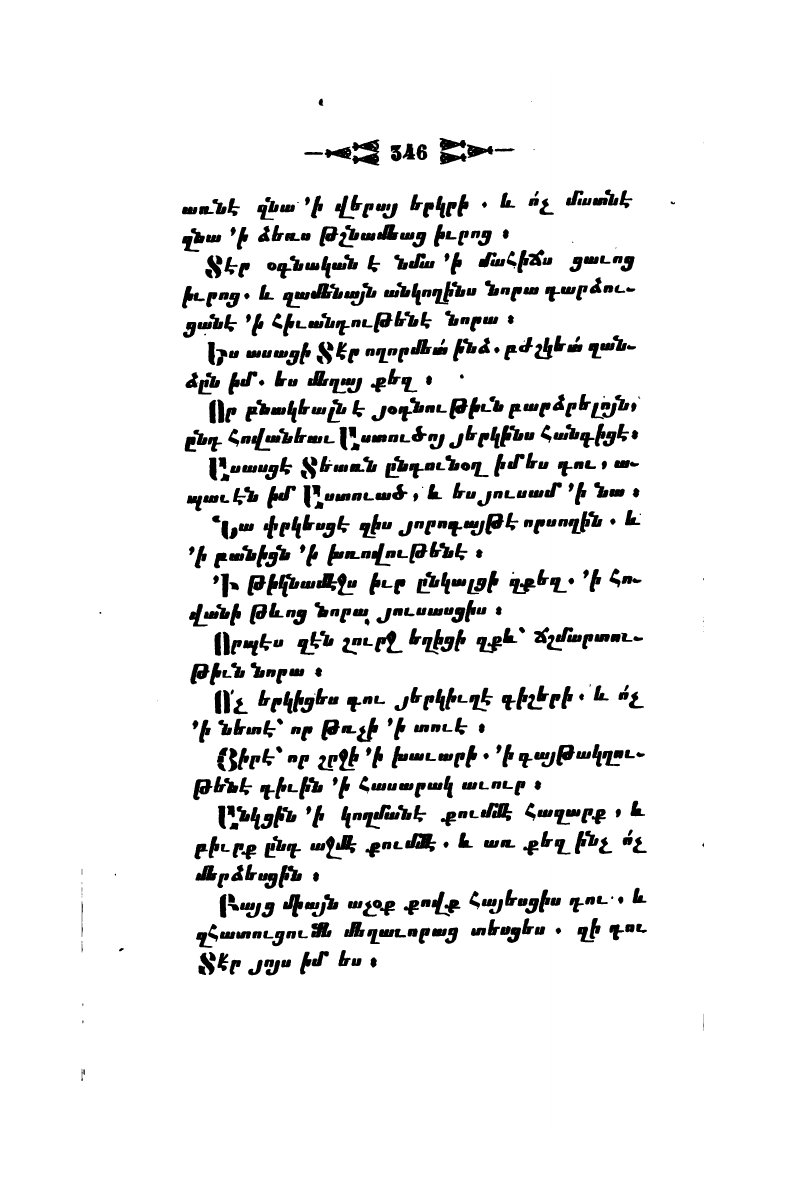 346
առնէ զնա ՚ի վերայ երկրի . և ո՛չ մատնէ
զնա ՚ի ձեռս թշնամեաց իւրոց ։
Տէր օգնական է նմա ՚ի մահիճս ցաւոց
իւրոց. և զամենայն անկողինս նորա դարձու-
ցանէ ՚ի հիւանդութենէ նորա ։
Ես ասացի Տէր ողորմեա՛ ինձ. բժշկեա՛ զան-
ձըն իմ. ես մեղայ քեզ ։
Որ բնակեալն է յօգնութիւն բարձրելոյն,
ընդ հովանեաւ Աստուծոյ յերկինս հանգիցէ։
Ասասցէ Տեառն ընդունօղ իմ ես դու, ա-
պաւէն իմ Աստուած, և ես յուսամ ՚ի նա ։
Նա փրկեսցէ զիս յորոգայթէ որսողին . և
՚ի բանիցն ՚ի խռովութենէ ։
՚Ի թիկնամէջս իւր ընկալցի զքեզ . ՚ի հո-
վանի թևոց նորա յուսասցիս ։
Որպէս զէն շուրջ եղիցի զքև՝ ճշմարտու-
թիւն նորա ։
Ո՛չ երկիցես դու յերկիւղէ գիշերի . և ո՛չ
՚ի նետէ՝ որ թռչի ՚ի տուէ ։
Յիրէ՝ որ շրջի ՚ի խաւարի . ՚ի գայթակղու-
թենէ դիւին ՚ի հասարակ աւուր ։
Անկցին ՚ի կողմանէ քումմէ հազարք, և
բիւրք ընդ աջմէ քումմէ . և առ քեզ ինչ ո՛չ
մերձեսցին ։
Բայց միայն աչօք քովք հայեսցիս դու . և
զհատուցումն մեղաւորաց տեսցես . զի դու
Տէր յոյս իմ ես ։